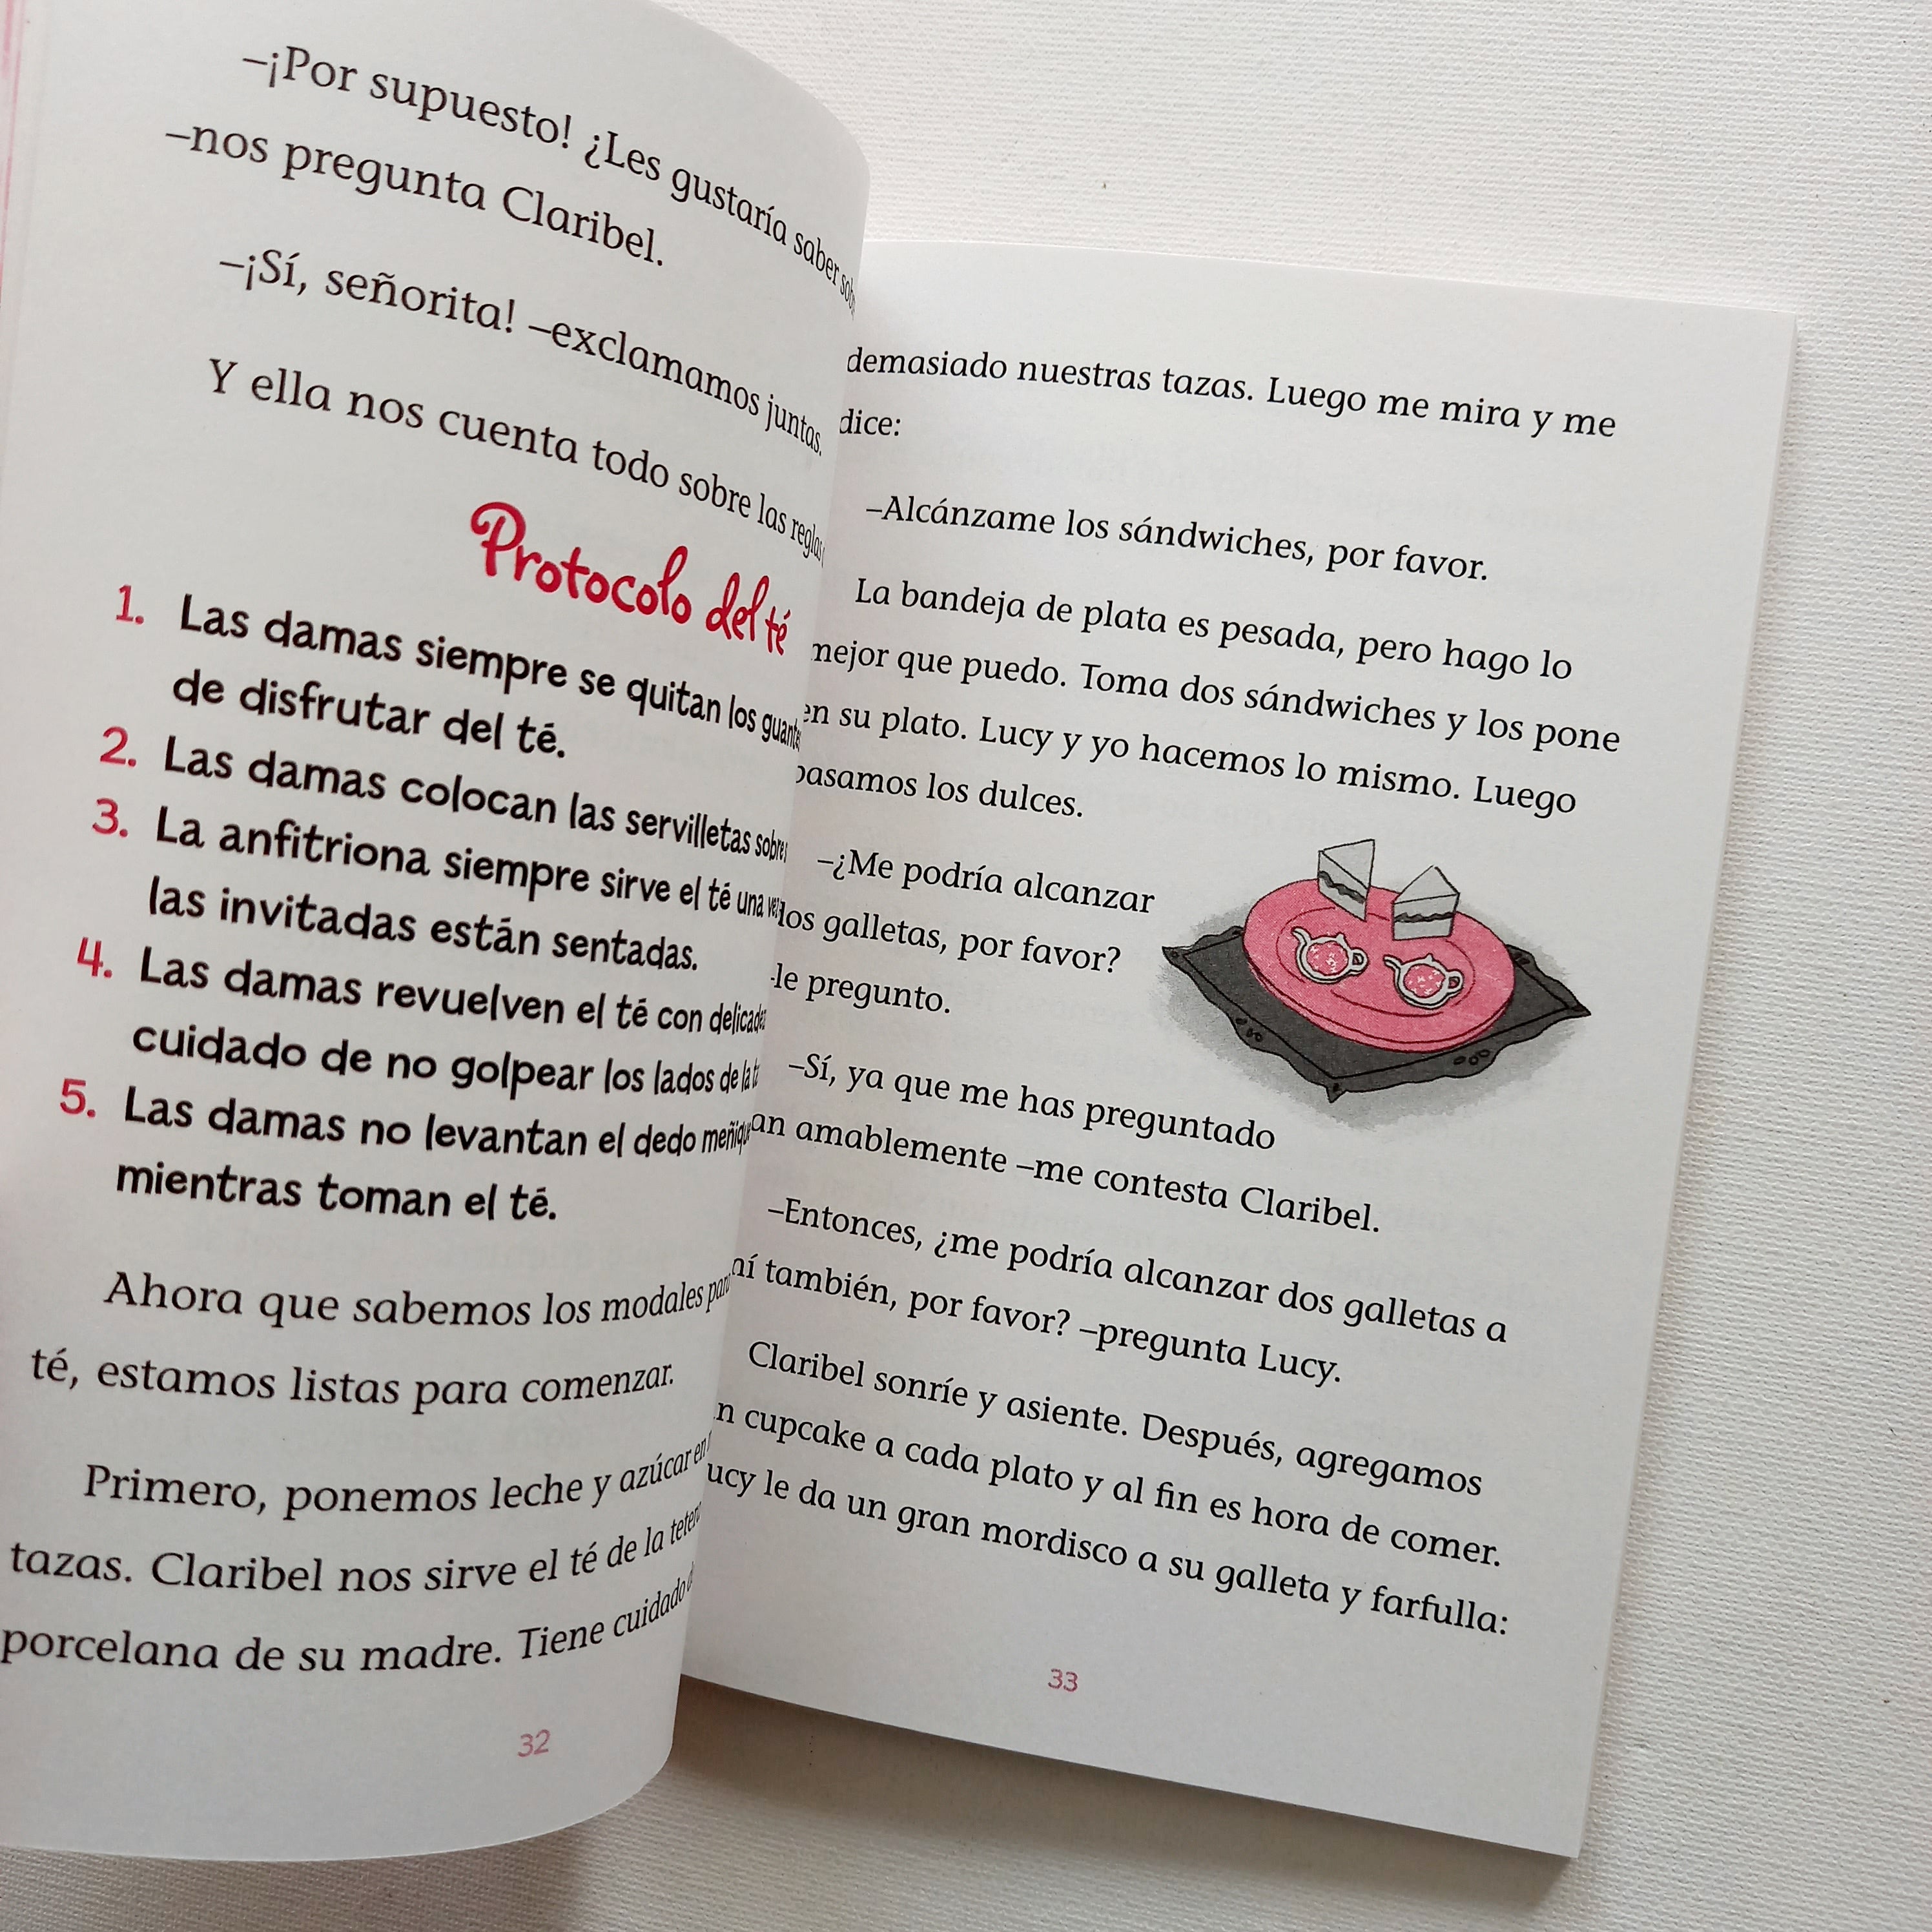 –¡Por supuesto! ¿Les gustaría saber
–nos pregunta Claribel.
–¡Sí, señorita! –exclamamos juntas.
Y ella nos cuenta todo sobre las reglas
Protocolo del té
1. Las damas siempre se quitan los
de disfrutar del té.
2. Las damas colocan las servilletas sobre
3. La anfitriona siempre sirve el té una
las invitadas están sentadas.
4. Las damas revuelven el té con
cuidado de no golpear los lados de la
5. Las damas no levantan el dedo
mientras toman el té.
Ahora que sabemos los modales
té, estamos listas para comenzar.
Primero, ponemos leche y azúcar en
tazas. Claribel nos sirve el té de la
porcelana de su madre. Tiene cuidado
32
demasiado nuestras tazas. Luego me mira y me
dice:
–Alcánzame los sándwiches, por favor.
La bandeja de plata es pesada, pero hago lo
mejor que puedo. Toma dos sándwiches y los pone
en su plato. Lucy y yo hacemos lo mismo. Luego
pasamos los dulces.
–¿Me podría alcanzar
los galletas, por favor?
–le pregunto.
–Sí, ya que me has preguntado
an amablemente –me contesta Claribel.
–Entonces, ¿me podría alcanzar dos galletas a
también, por favor? –pregunta Lucy.
Claribel sonríe y asiente. Después, agregamos
cupcake a cada plato y al fin es hora de comer.
ucy le da un gran mordisco a su galleta y farfulla:
33